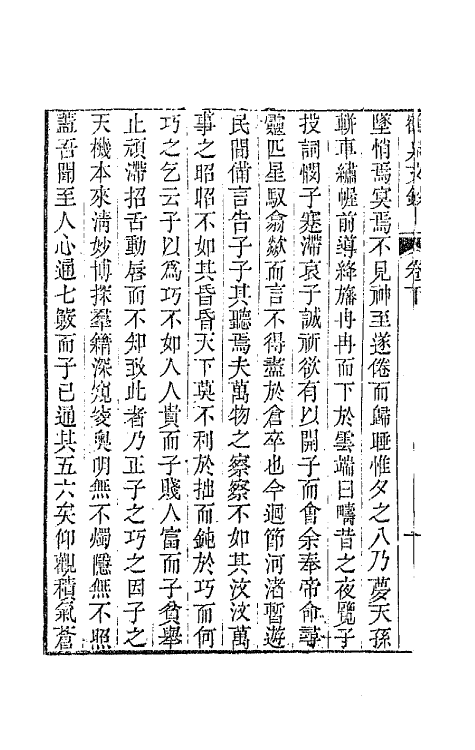 卷下
墜悄焉寞焉不見神至遂倦而歸睡惟夕之八乃夢天孫
輧車繡幄前導絳旛冉冉而下於雲端曰疇昔之夜覽子
投詞憫子蹇滯哀子誠祈欲有以開子而會余奉帝命尋
靈匹星馭翕歘而言不得盡於倉卒也今迴節河渚暫遊
民間備言告子子其聽焉夫萬物之察察不如其汶汶萬
事之昭昭不如其昏昏天下莫不利於拙而鈍於巧而何
巧之乞云子以為巧不如人人貴而子賤人富而子貧舉
止頑滯招舌動唇而不知致此者乃正子之巧之因子之
天機本來淸妙博探羣籍深窺窔奧明無不燭隱無不照
蓋吾聞至人心通七竅而子已通其五六矣仰觀積氣蒼